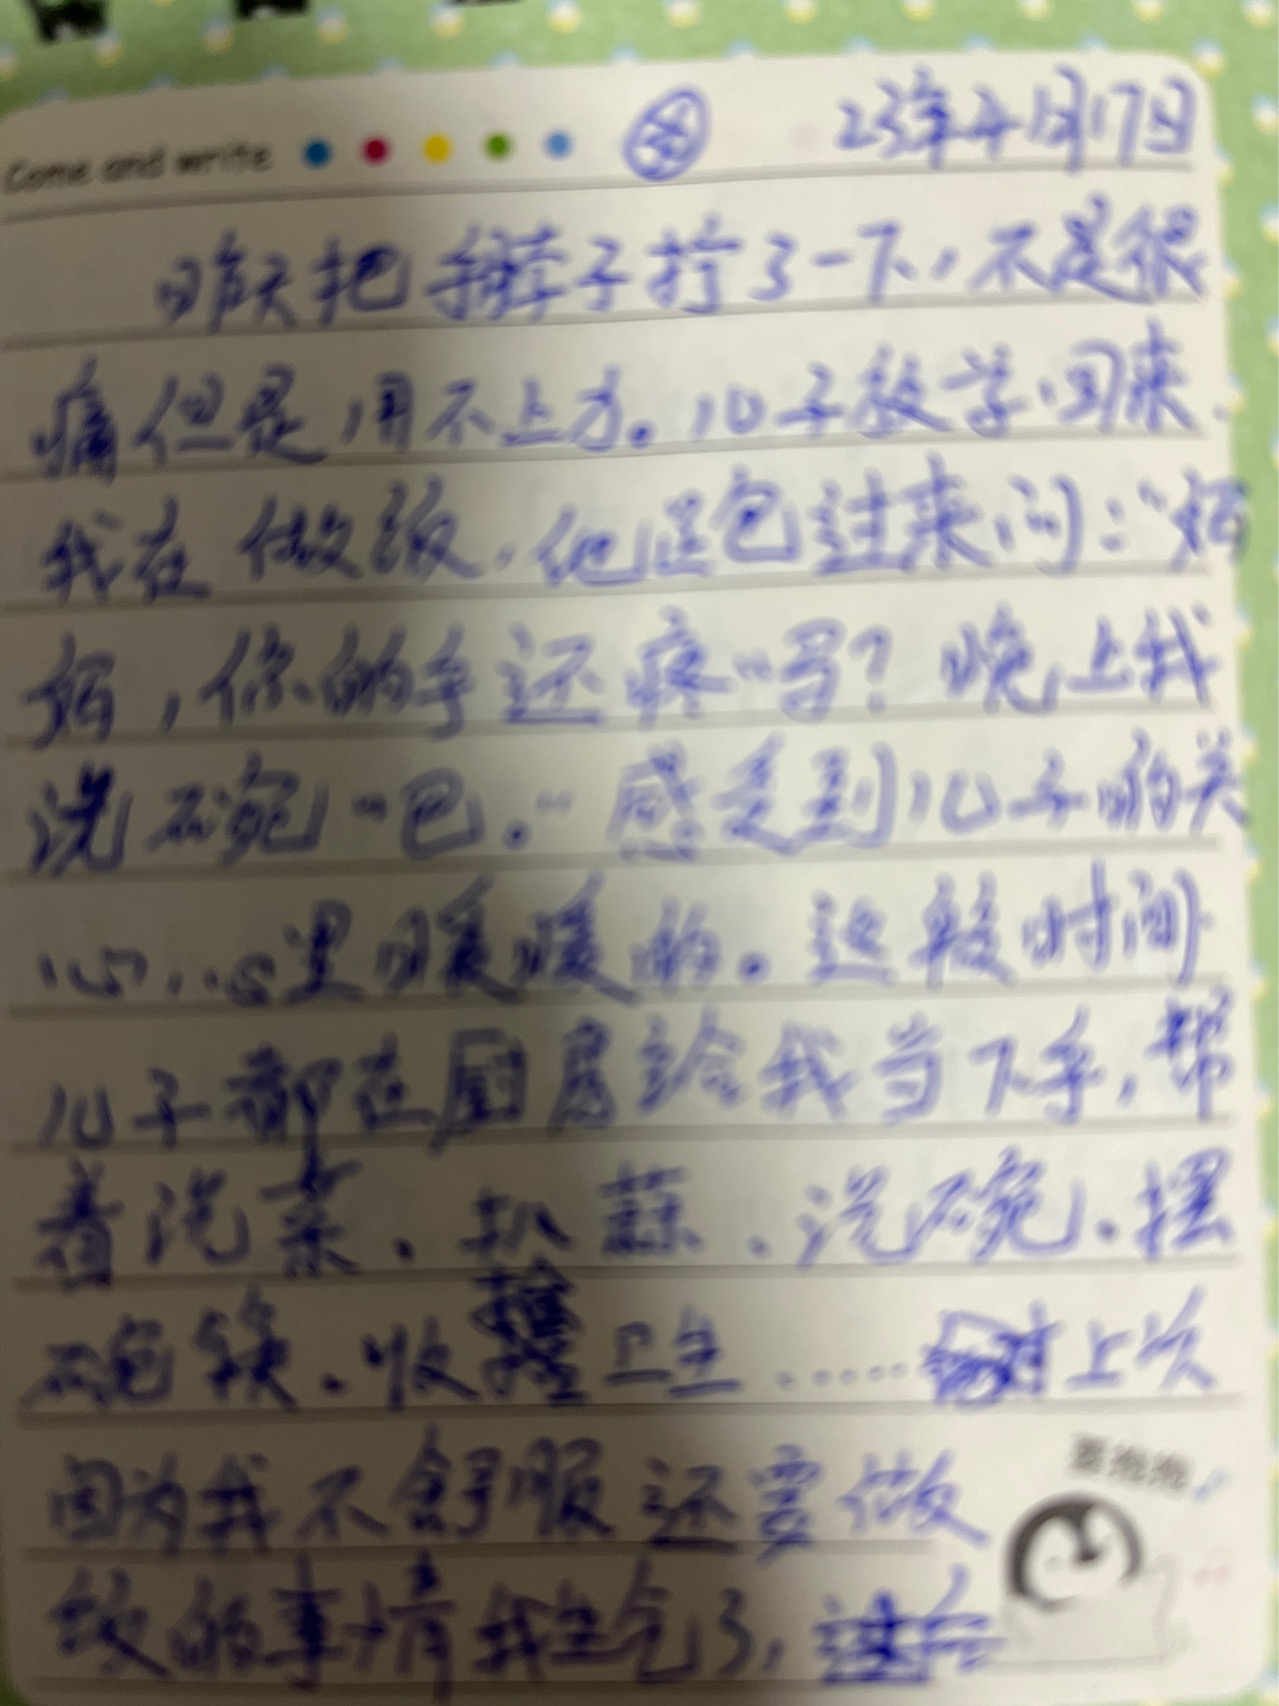 Come and write 23年4月17日
昨天把 子拧了一下,不是很
痛但是用不上力。儿子放学回来.
我在做饭,他跑过来问:“妈
妈,你的手还疼吗?晚上我
洗碗吧。”感受到儿子的关
心,心里暖暖的。这段时间
儿子都在厨房给我当下手,帮
着洗菜、扒蒜、洗碗、摆
碗筷、收 卫生……上次
因为我不舒服还要做
要抱抱
饭的事情我生气了,